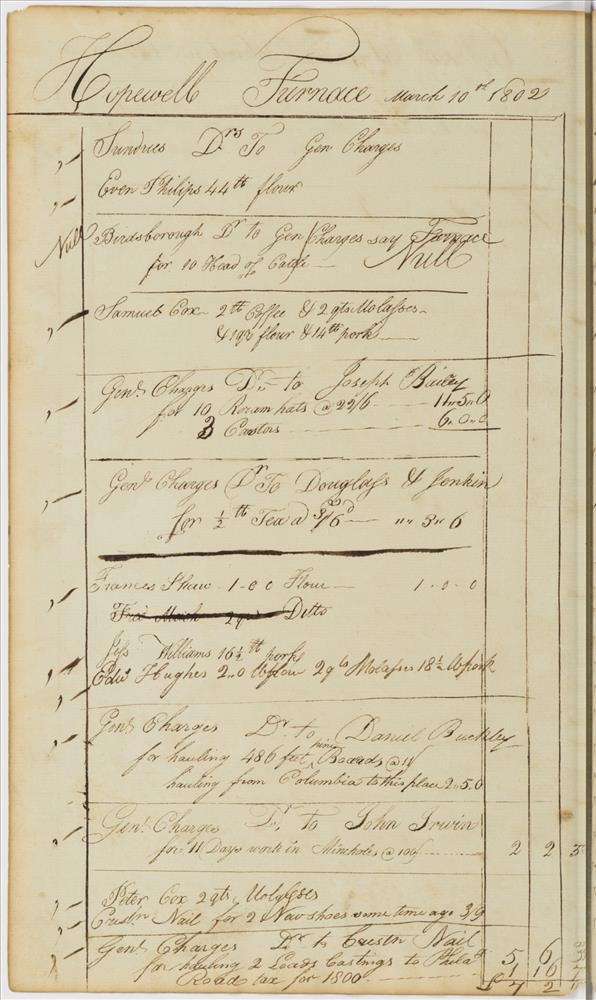 Hopewell Furnace March 10th 1802
Sundries Drs To Gen Charges
Even Philips 44 lb flour
Null Birdsborough Dr to Gen Charges say Furnace
for 10 Head of Null
Samuel Cox 2 lb Coffee & 2 qts Molasses
& 1 qr flour & 14 lb pork
Genl Charges Dr to Joseph Bailey
for 10 Roram hats @ 22/6 11 5 0
3 Castors 6 0 0
Genl Charges Dr To Douglass & Jenkin
for 1/2 lb Tea a 3/6d " 3 " 6
Frances Shaw 1-0 0 Flour 1 - 0 - 0
Ditto
Williams 16 1/2 lb pork
Edwd Hughes 2 " 0 2 qts Molasses 18 1/2 lb pork
Genl Charges Dr to Daniel Buckley
for hauling 486 feet pine Boards @ 11/
hauling from Columbia to this place 2 " 5 " 0
Genl Charges Dr to John Irwin
for 11 Days work in Mineholes @ 2 2 3
Peter Cox 2 qts Molasses
Crisn Nail for 2 New shoes some time ago 3/9
Genl Charges Dr to Crisn Nail
for hauling 2 Loads Castings to Philad 5 6
Road tax for 1800 1 16
£ 7 2